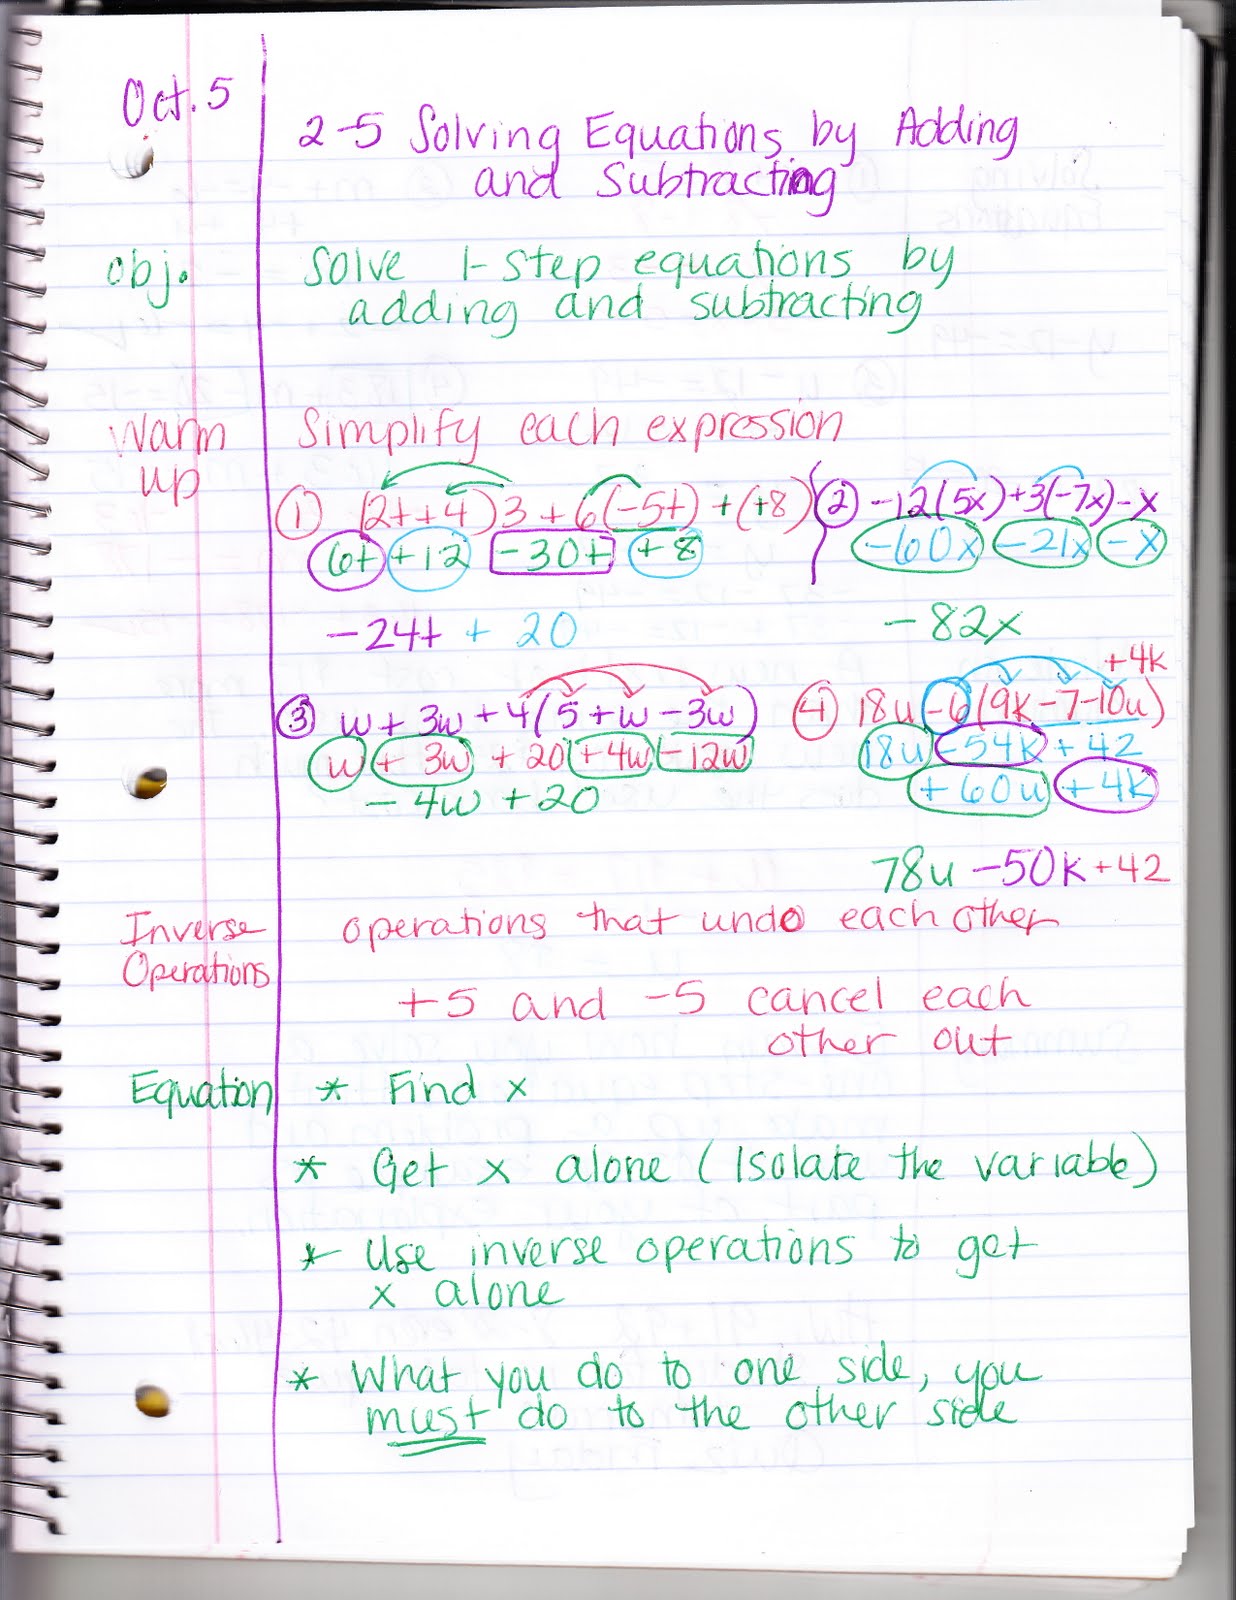 Oct. 5
2-5 Solving Equations by Adding
and Subtracting
obj.
Solve 1-step equations by
adding and subtracting
Warm
up
Simplify each expression
① (2t + 4)3 + 6(-5t) + (+8)
6t +12 -30t +8
-24t + 20
② -12(5x)+3(-7x)-x
-60x -21x -x
-82x
③ w + 3w + 4(5 + w - 3w)
w + 3w + 20 + 4w - 12w
- 4w + 20
+4k
④ 18u -6(9k -7 -10u)
18u -54k + 42
+ 60u + 4k
78u -50k +42
Inverse
Operations
operations that undo each other
+5 and -5 cancel each
other out
Equation
* Find x
* Get x alone (Isolate the variable)
* Use inverse operations to get
x alone
* What you do to one side, you
must do to the other side